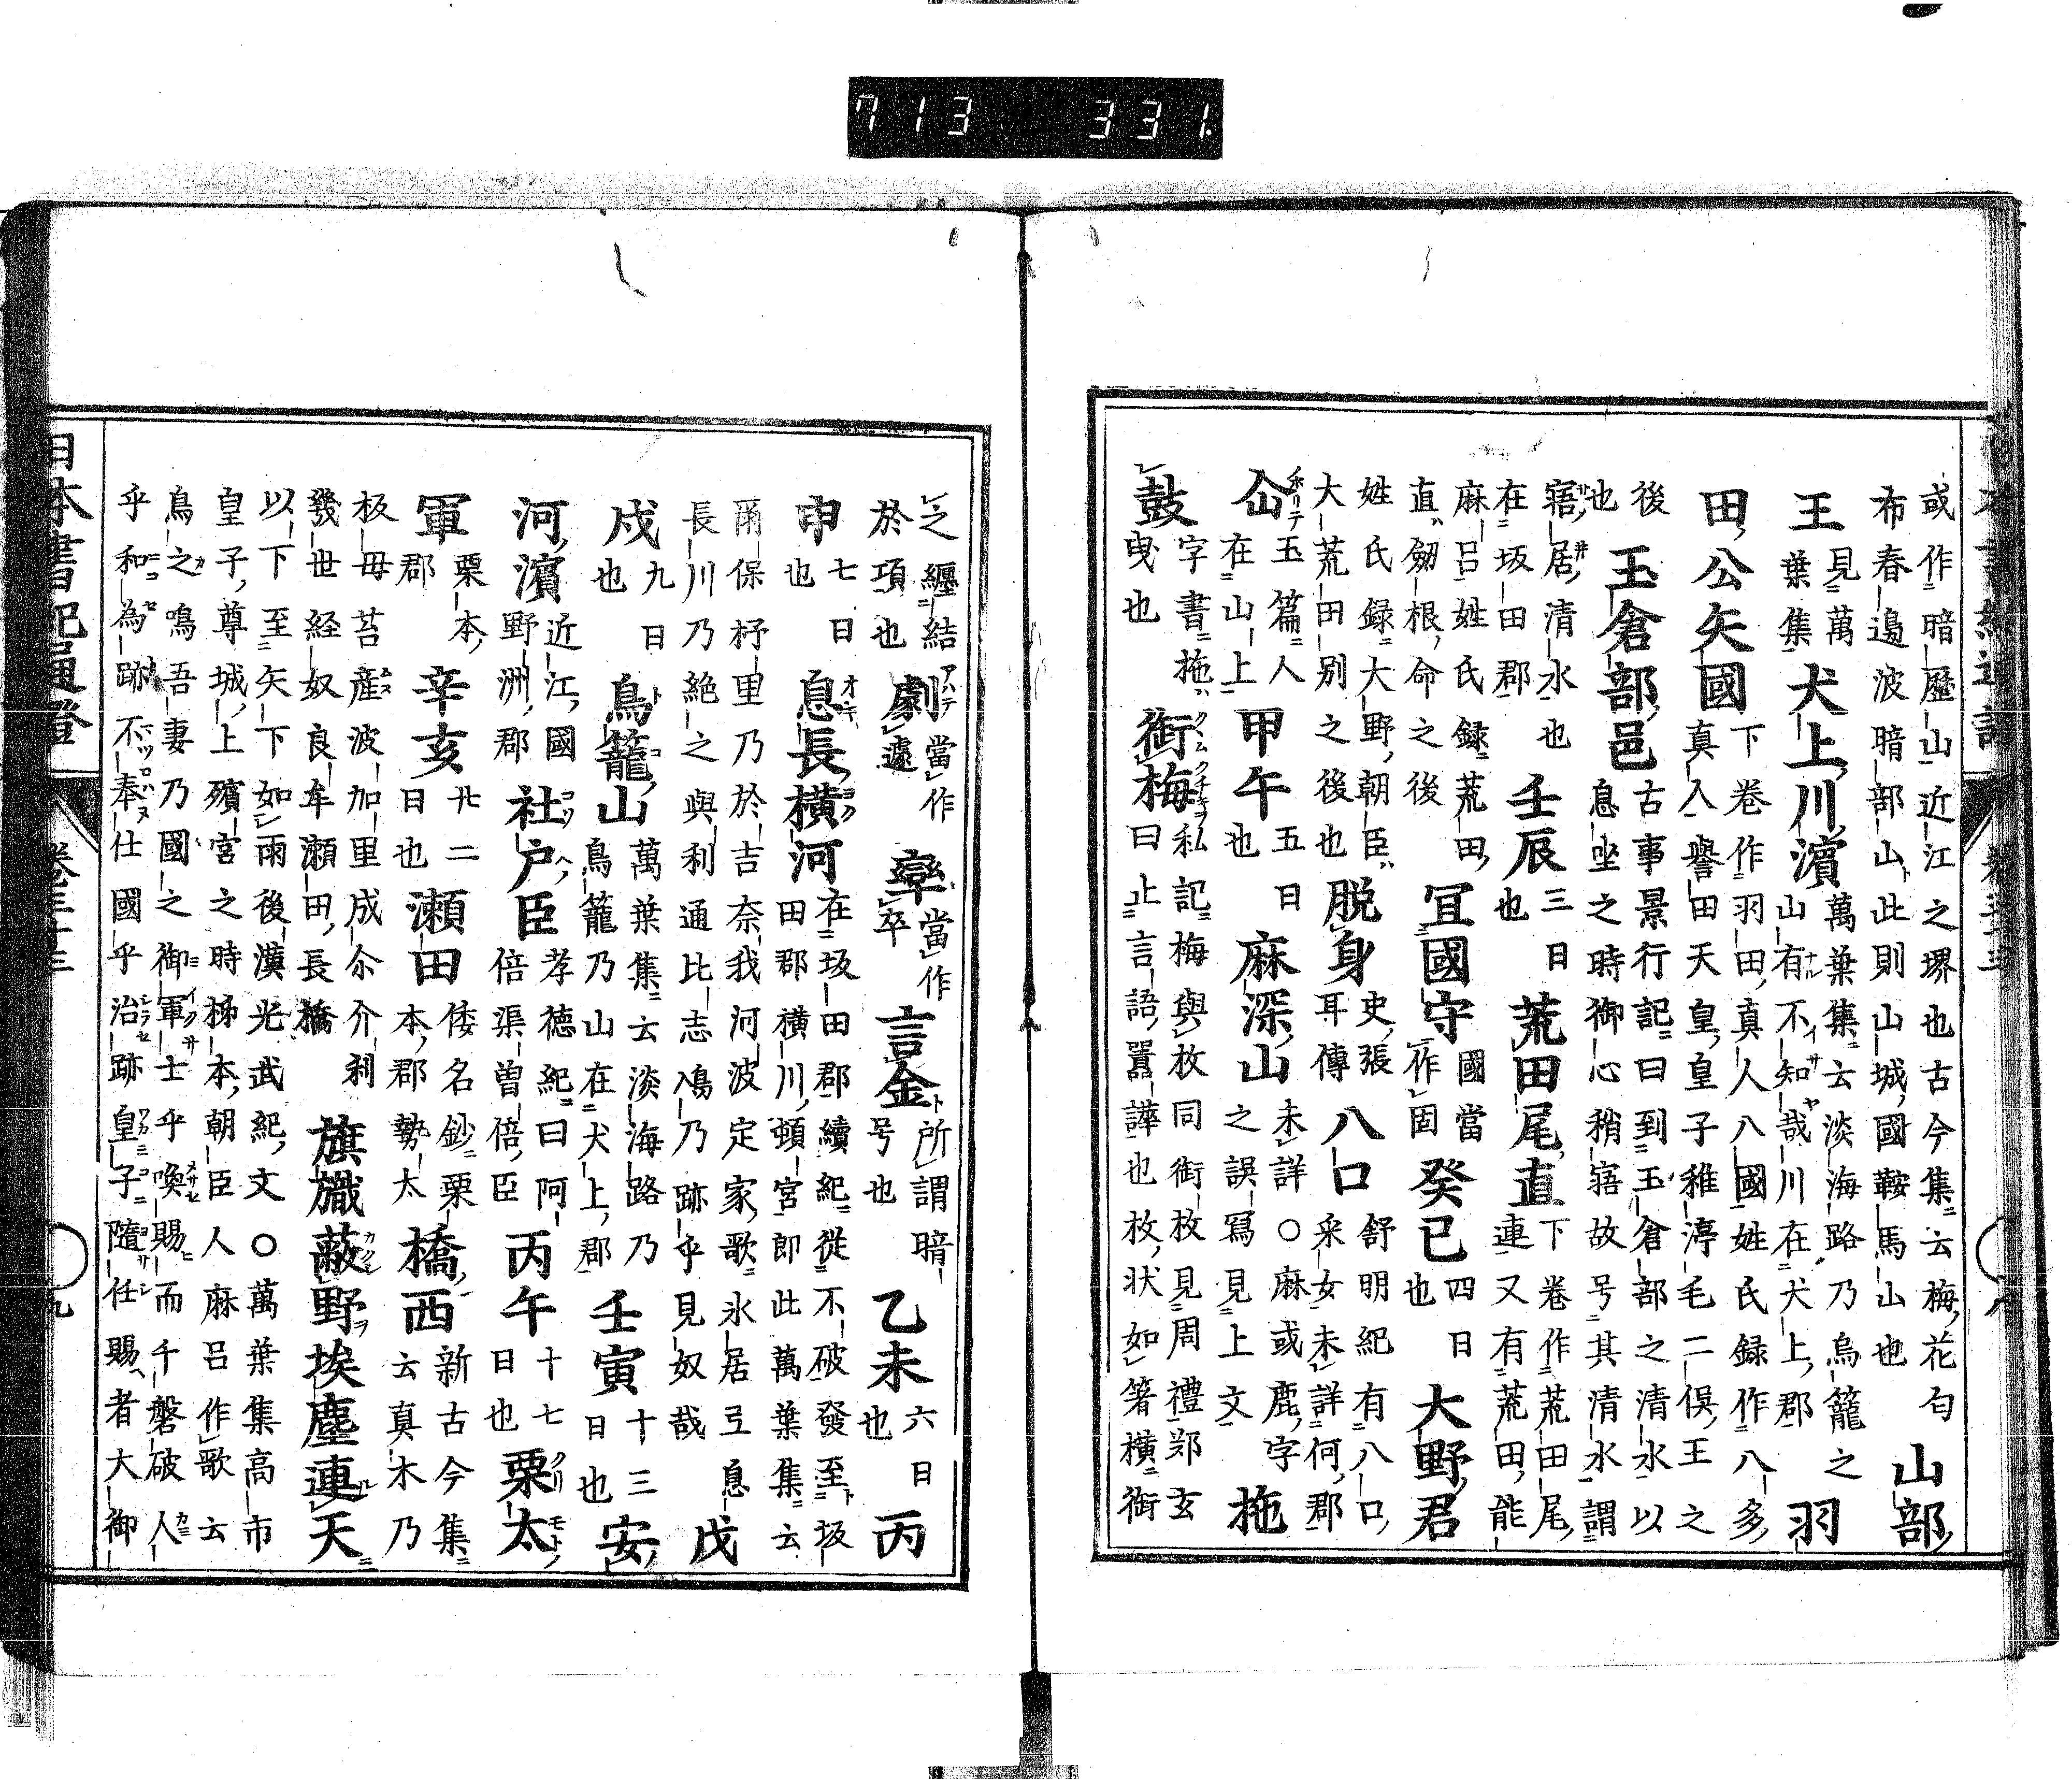 或作暗歷山近江之堺也古今集云梅花匂布春邉波暗部山此則山城國鞍馬山也 山部
王 見萬葉集 犬上川濱 萬葉集云淡海路乃鳥籠之山有不知哉川在犬上郡 羽
田公矢國 下巻作羽田真人八國姓氏録作八多真人譽田天皇皇子稚渟毛二俣王之
後也 玉倉部邑 古事景行記曰到玉倉部之清水以息坐之時御心稍寤故号其清水謂
寤居清水也在坂田郡 壬辰 三日也 荒田尾直 下巻作荒田尾連又有荒田能
麻呂姓氏録荒田直劔根命之後 冝國守 國當作固 癸巳 四日也 大野君
姓氏録大野朝臣大荒田別之後也 脱身 史張耳傳 八口 舒明紀有八口采女未詳何郡
仚 玉篇人在山上 甲午 五日也 麻深山 未詳○麻或鹿字之誤冩見上文 拖
鼓 字書拖曳也 銜梅 私記梅與枚同銜枚見周禮郑玄曰止言語囂譁也枚状如箸横銜
之纒結於項也 劇 當作遽 當作卒 言金 所謂暗号也 乙未 六日也 丙
申 七日也 息長横河 在坂田郡續紀從不破發至坂田郡横川頓宮即此萬葉集云
爾保杼里乃於吉奈我河波定家歌氷居弖息長川乃絶之與利通比志鳰乃跡乎見奴哉 戊
戌 九日也 鳥籠山 萬葉集云淡海路乃鳥籠乃山在犬上郡 壬寅 十三日也 安
河濱 近江國野洲郡 社戸臣 孝徳紀曰阿倍渠曽倍臣 丙午 十七日也 栗太
軍 栗本郡 辛亥 廿二日也 瀬田 倭名鈔栗本郡勢太 橋西 新古今集云真木乃
板毋苔産波加里成尒介利幾世経奴良牟瀬田長橋 旗旘蔽野埃塵連天
以下至矢下如雨後漢光武紀文○萬葉集高市皇子尊城上殯宮之時柹本朝臣人麻呂作歌云
鳥之鳴吾妻乃國之御軍士乎喚賜而千磐破人乎和為跡不奉仕國乎治跡皇子隨任賜者大御
日本書紀通證 巻三十三 九
713 331